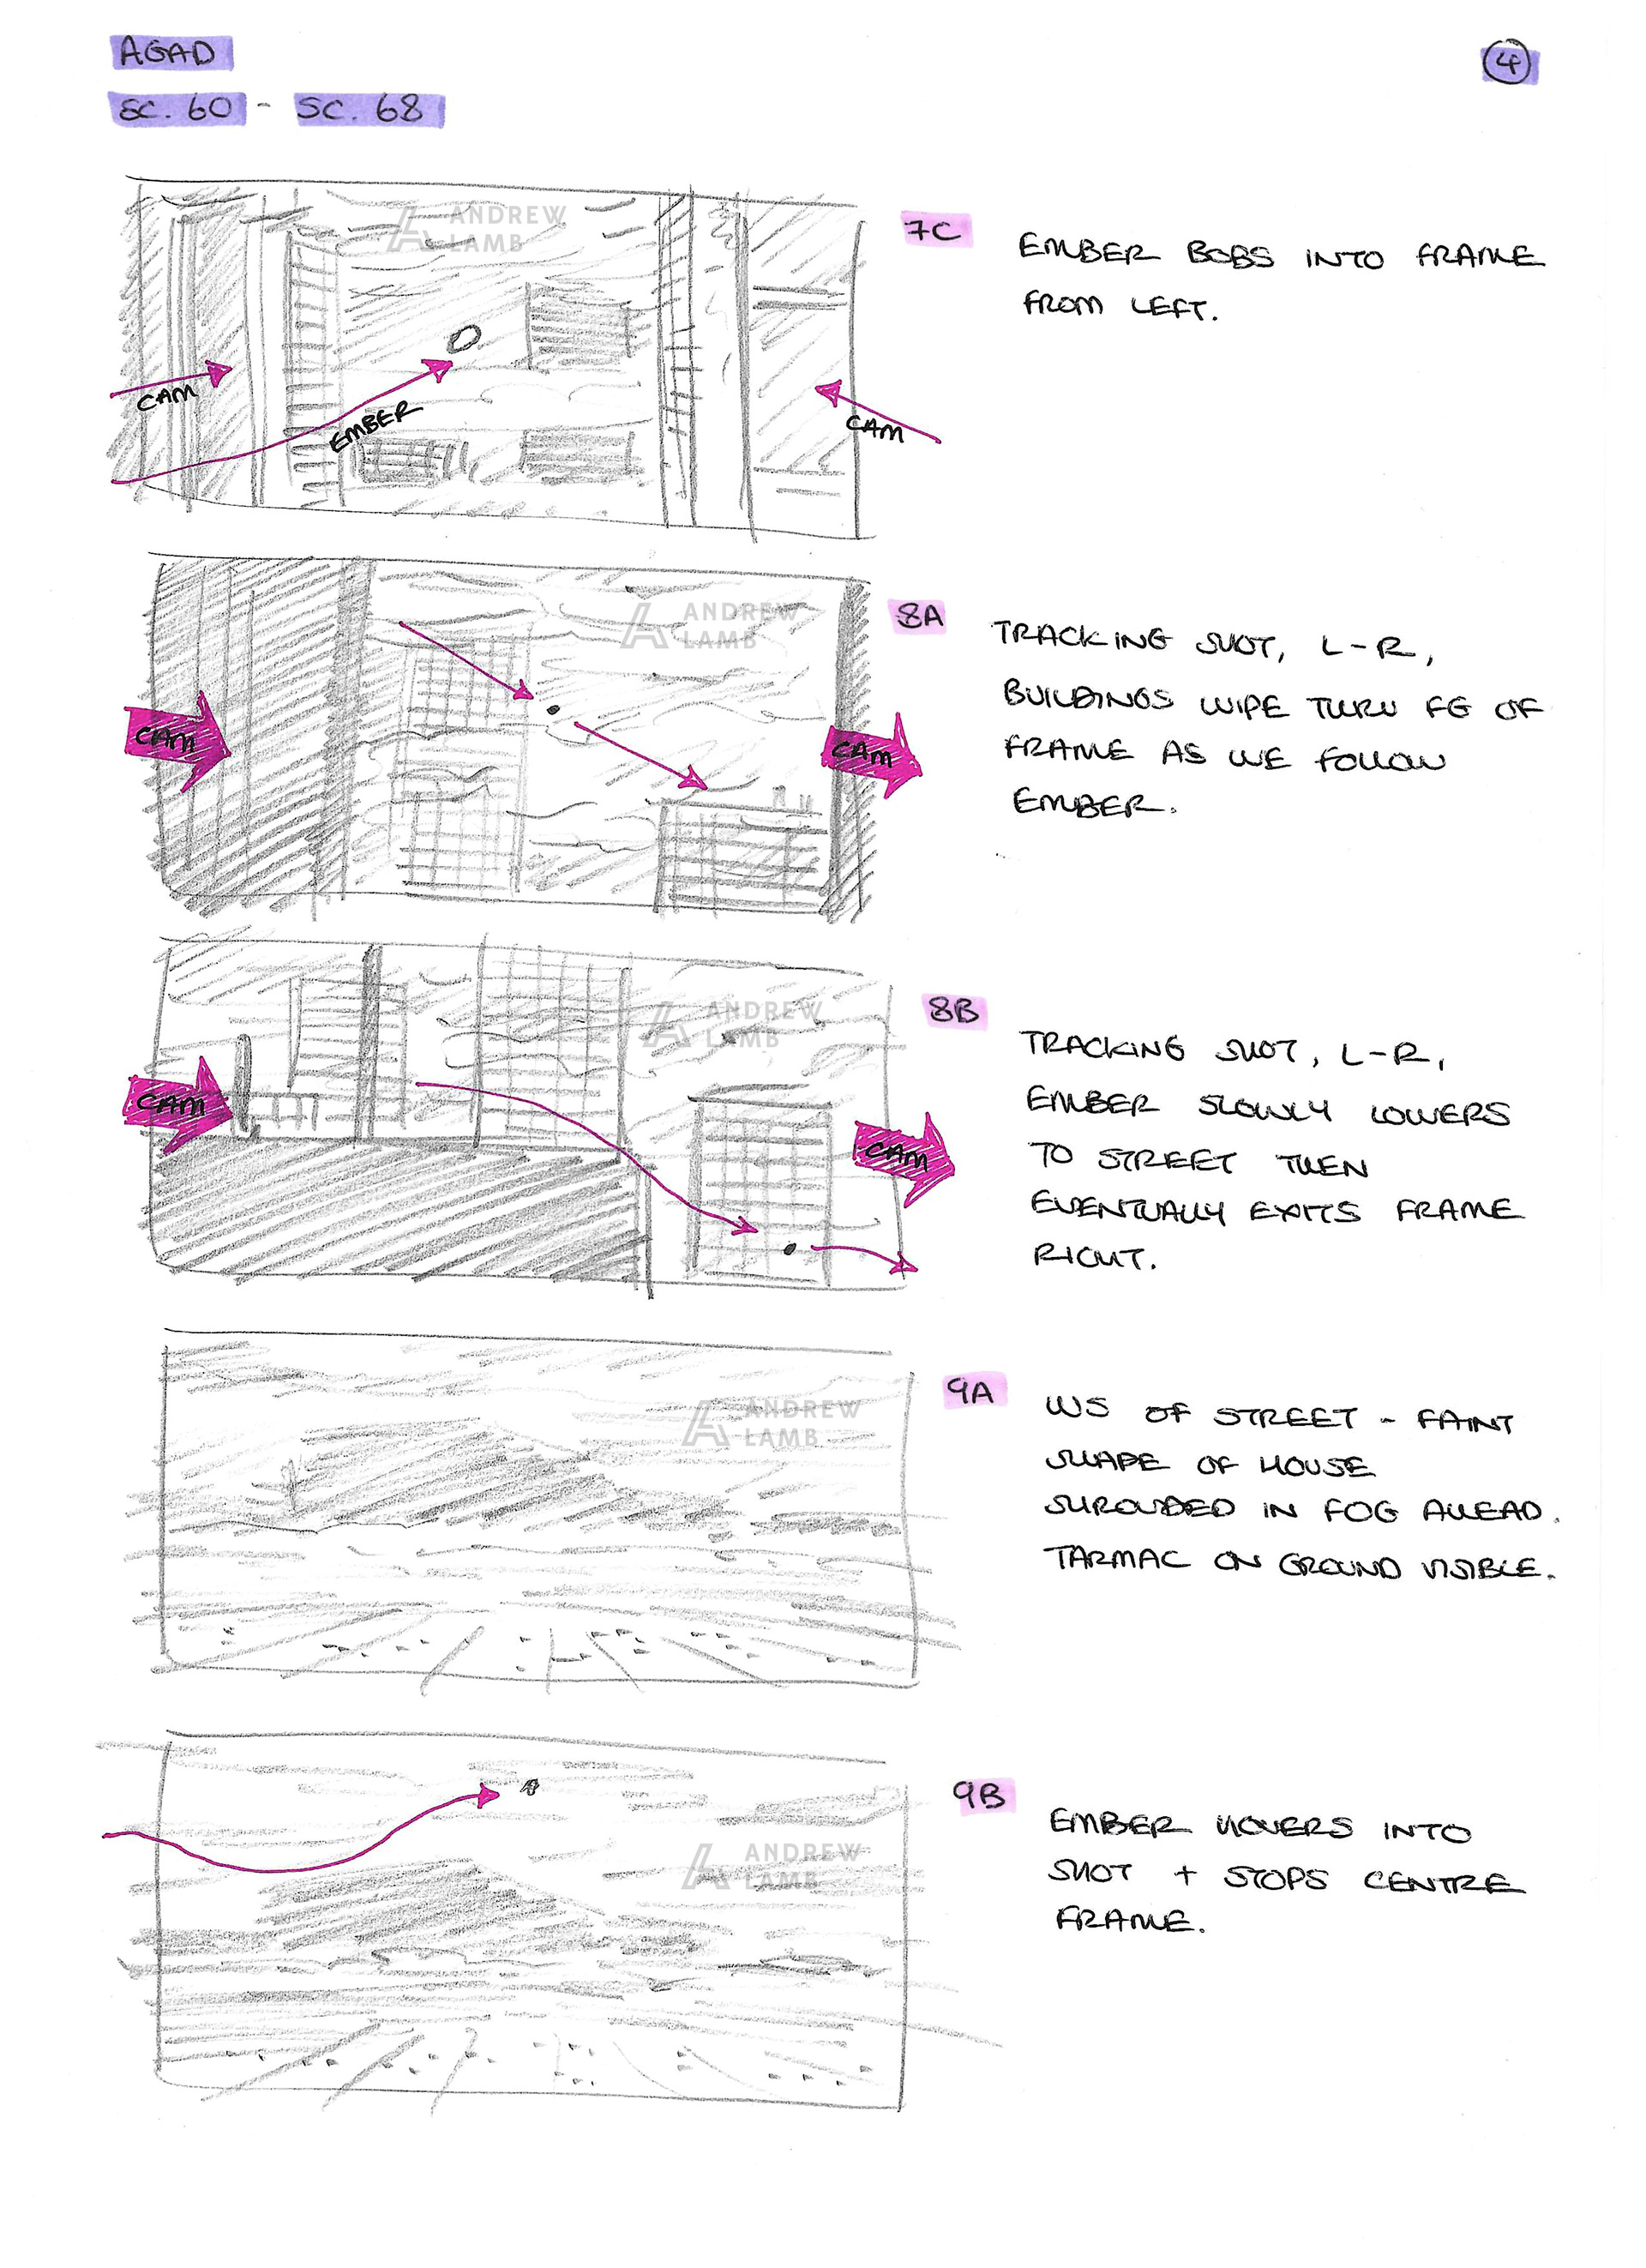 AGAD
4
SC. 60 - SC. 68
ANDREW
LAMB
7C
EMBER BOBS INTO FRAME
FROM LEFT.
CAM
EMBER
CAM
ANDREW
LAMB
8A
TRACKING SHOT, L-R,
BUILDINGS WIPE THRU FG OF
FRAME AS WE FOLLOW
EMBER.
CAM
CAM
ANDREW
LAMB
8B
TRACKING SHOT, L-R,
EMBER SLOWLY LOWERS
TO STREET THEN
EVENTUALLY EXITS FRAME
RIGHT.
CAM
CAM
ANDREW
LAMB
9A
WS OF STREET - FAINT
SHAPE OF HOUSE
SHROUDED IN FOG AHEAD.
TARMAC ON GROUND VISIBLE.
ANDREW
LAMB
9B
EMBER HOVERS INTO
SHOT + STOPS CENTRE
FRAME.